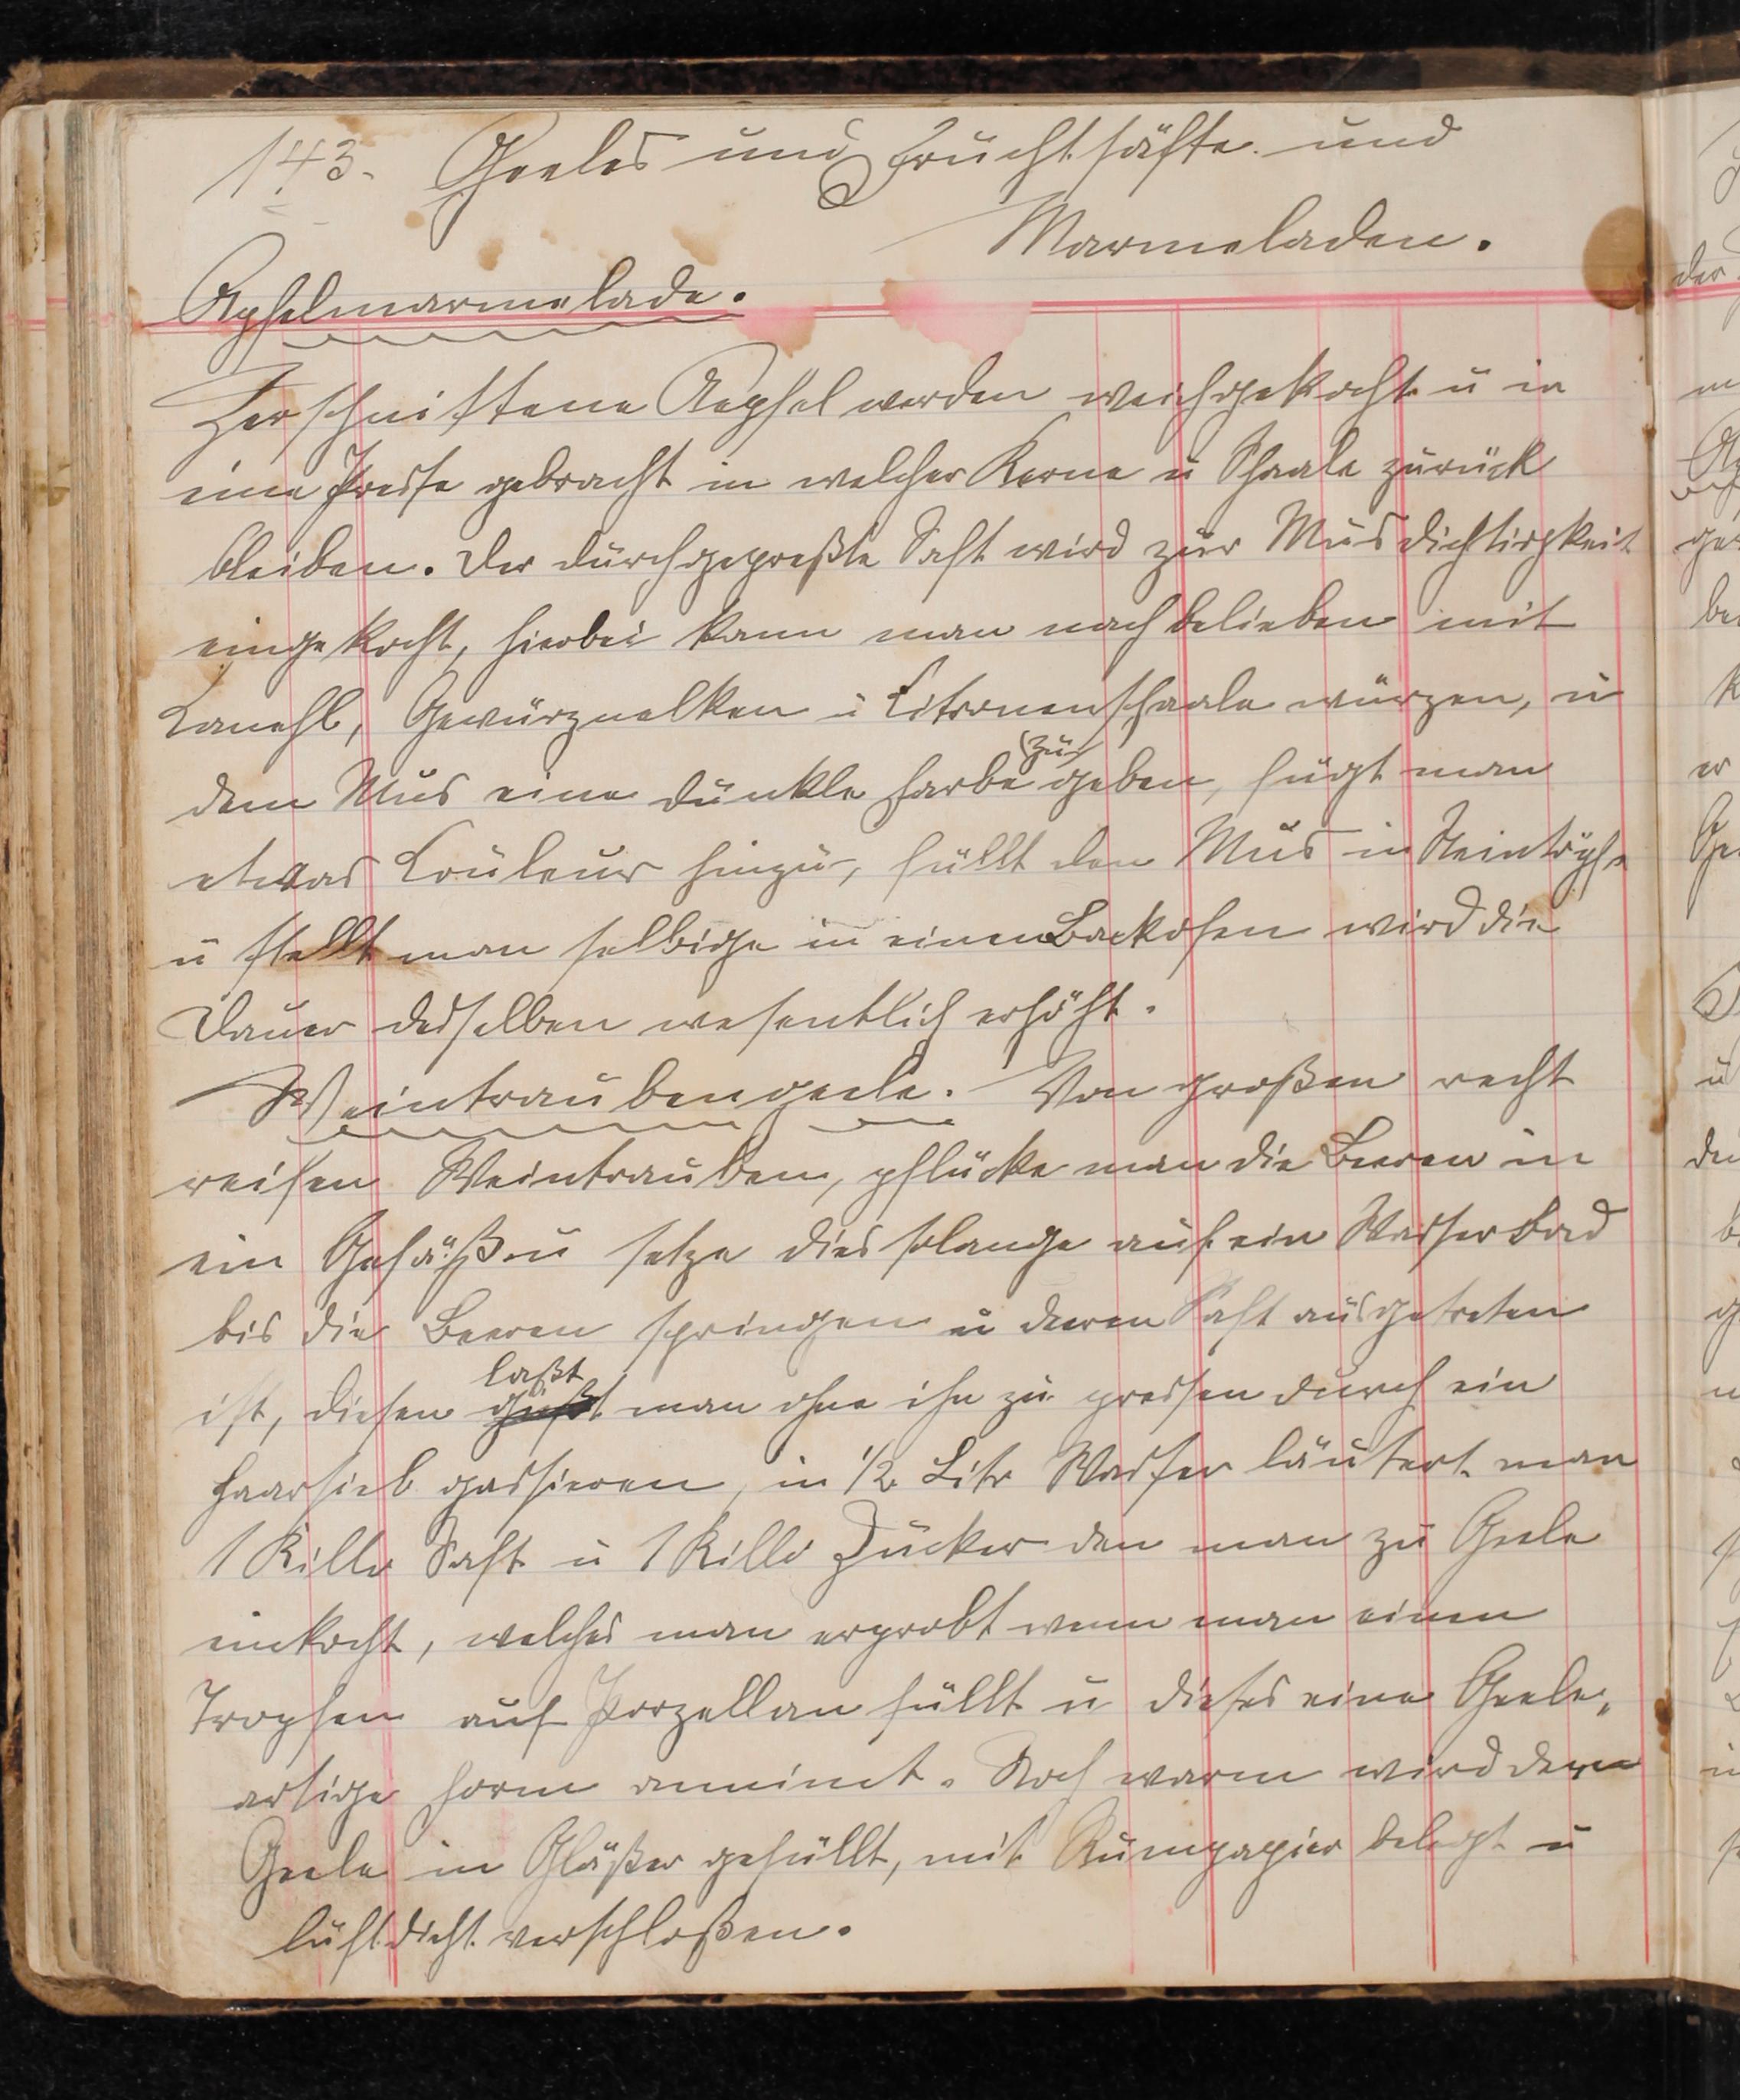 143. Geeles und Fruchtsäfte und
Marmeladen.
Apfelmarmelade.
Zerschnittene Aepfel werden weichgekocht u in
eine Presse gebracht in welcher Kerne u Schaale zurück
bleiben. Der durchgepreßte Saft wird zur Musdichtigkeit
eingekocht, hierbei kann man nach belieben mit
Kanehl, Gewürznelken u Citronenschaale würzen, u
dem Mus eine dunkle Farbe (zu) geben, fügt man
etwas Couleur hinzu, füllt den Mus in Steintöpfe
u stellt man selbige in einen Backofen wird die
Dauer desselben wesentlich erhöht.
Weintraubengeele. Von großen recht
reifen Weintrauben, pflücke man die Beeren in
ein Gefäß u setze dies solange auf ein Wasserbad
bis die Beeren springen u deren Saft ausgetreten
laßt
ist, diesen gießt man ohne ihn zu pressen durch ein
Haarsieb passieren, in 1/2 Litr Wasser läutert man
1 Killo Saft u 1 Killo Zucker den man zu Geele
einkocht, welches man erprobt wenn man einen
Tropfen auf Porzellan füllt u dieses eine Geele,
artige Form annimt. Noch warm wird dann
Geele in Gläßer gefüllt, mit Rumpapier belegt u
luftdicht verschloßen.